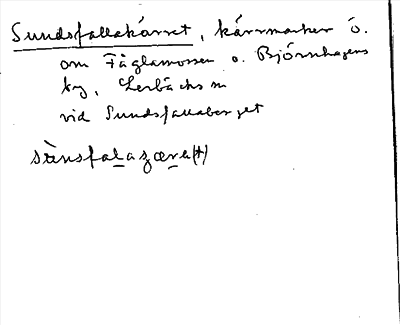 Sundsfallakärret, kärrmarker ö.
om Fåglamossen o. Björnhagens
by, Lerbäcks sn
vid Sundsfallaberget